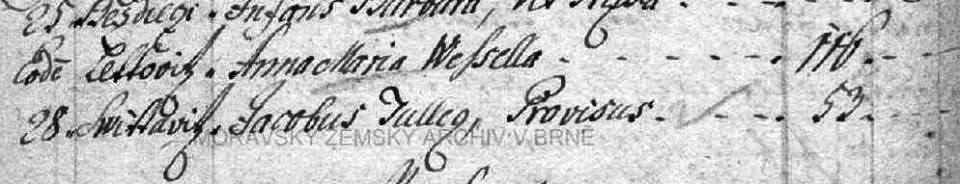 25 Infans Barbara,
Code Lettoviz. Anna Maria Wessella - - - - - 116.
28. Swittaviz. Jacobus Tulleg, Provisus - - - 53.
MORAVSKÝ ZEMSKÝ ARCHIV V BRNĚ